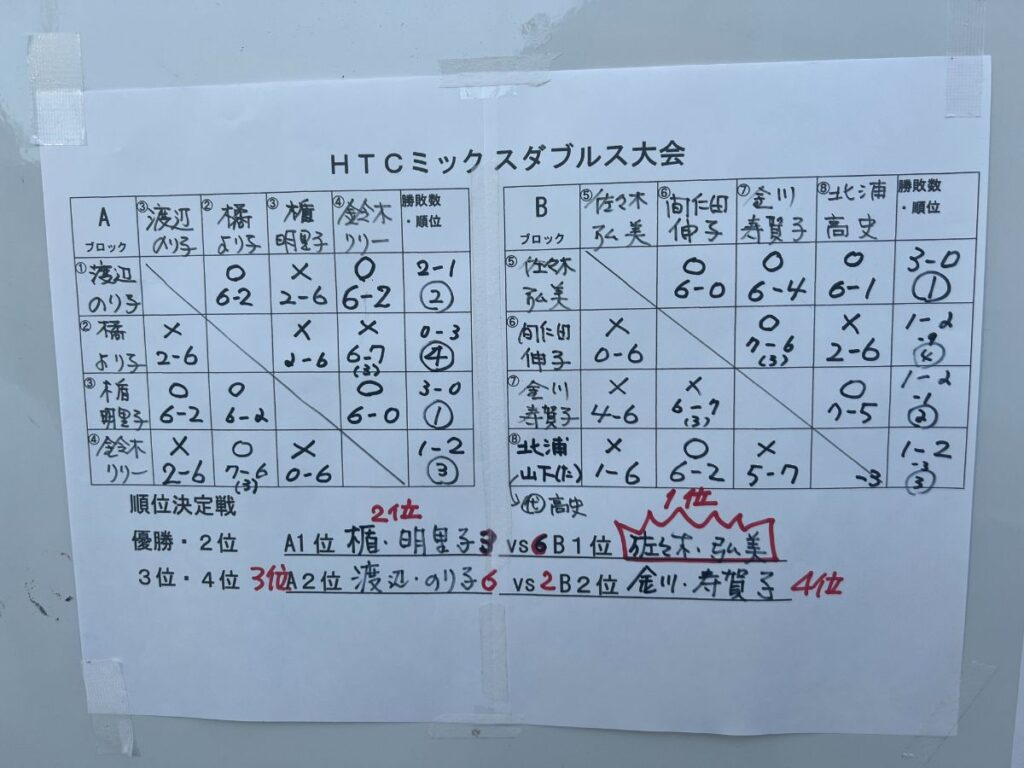 HTCミックスダブルス大会
A ブロック ③渡辺 のり子 ②橘 より子 ③楯 明里子 ④鈴木 リリー 勝敗数・順位
①渡辺 のり子 ○ 6-2 × 2-6 ○ 6-2 2-1 ②
②橘 より子 × 2-6 × 2-6 × 6-7 (3) 0-3 ④
③楯 明里子 ○ 6-2 ○ 6-2 ○ 6-0 3-0 ①
④鈴木 リリー × 2-6 ○ 7-6 (3) × 0-6 1-2 ③
B ブロック ⑤佐々木 弘美 ⑥ 伸子 ⑦金川 寿賀子 ⑧北浦 高史 勝敗数・順位
⑤佐々木 弘美 ○ 6-0 ○ 6-4 ○ 6-1 3-0 ①
⑥ 伸子 × 0-6 ○ 7-6 (3) × 2-6 1-2 -9 ④
⑦金川 寿賀子 × 4-6 × 6-7 (3) ○ 7-5 1-2 ②
⑧北浦 山下 × 1-6 ○ 6-2 × 5-7 -3 1-2 -3 ③
㈹高史
順位決定戦
2位 1位
優勝・2位 A1位 楯・明里子 3 vs 6 B1位 佐々木・弘美
3位・4位 3位 A2位 渡辺・のり子 6 vs 2 B2位 金川・寿賀子 4位